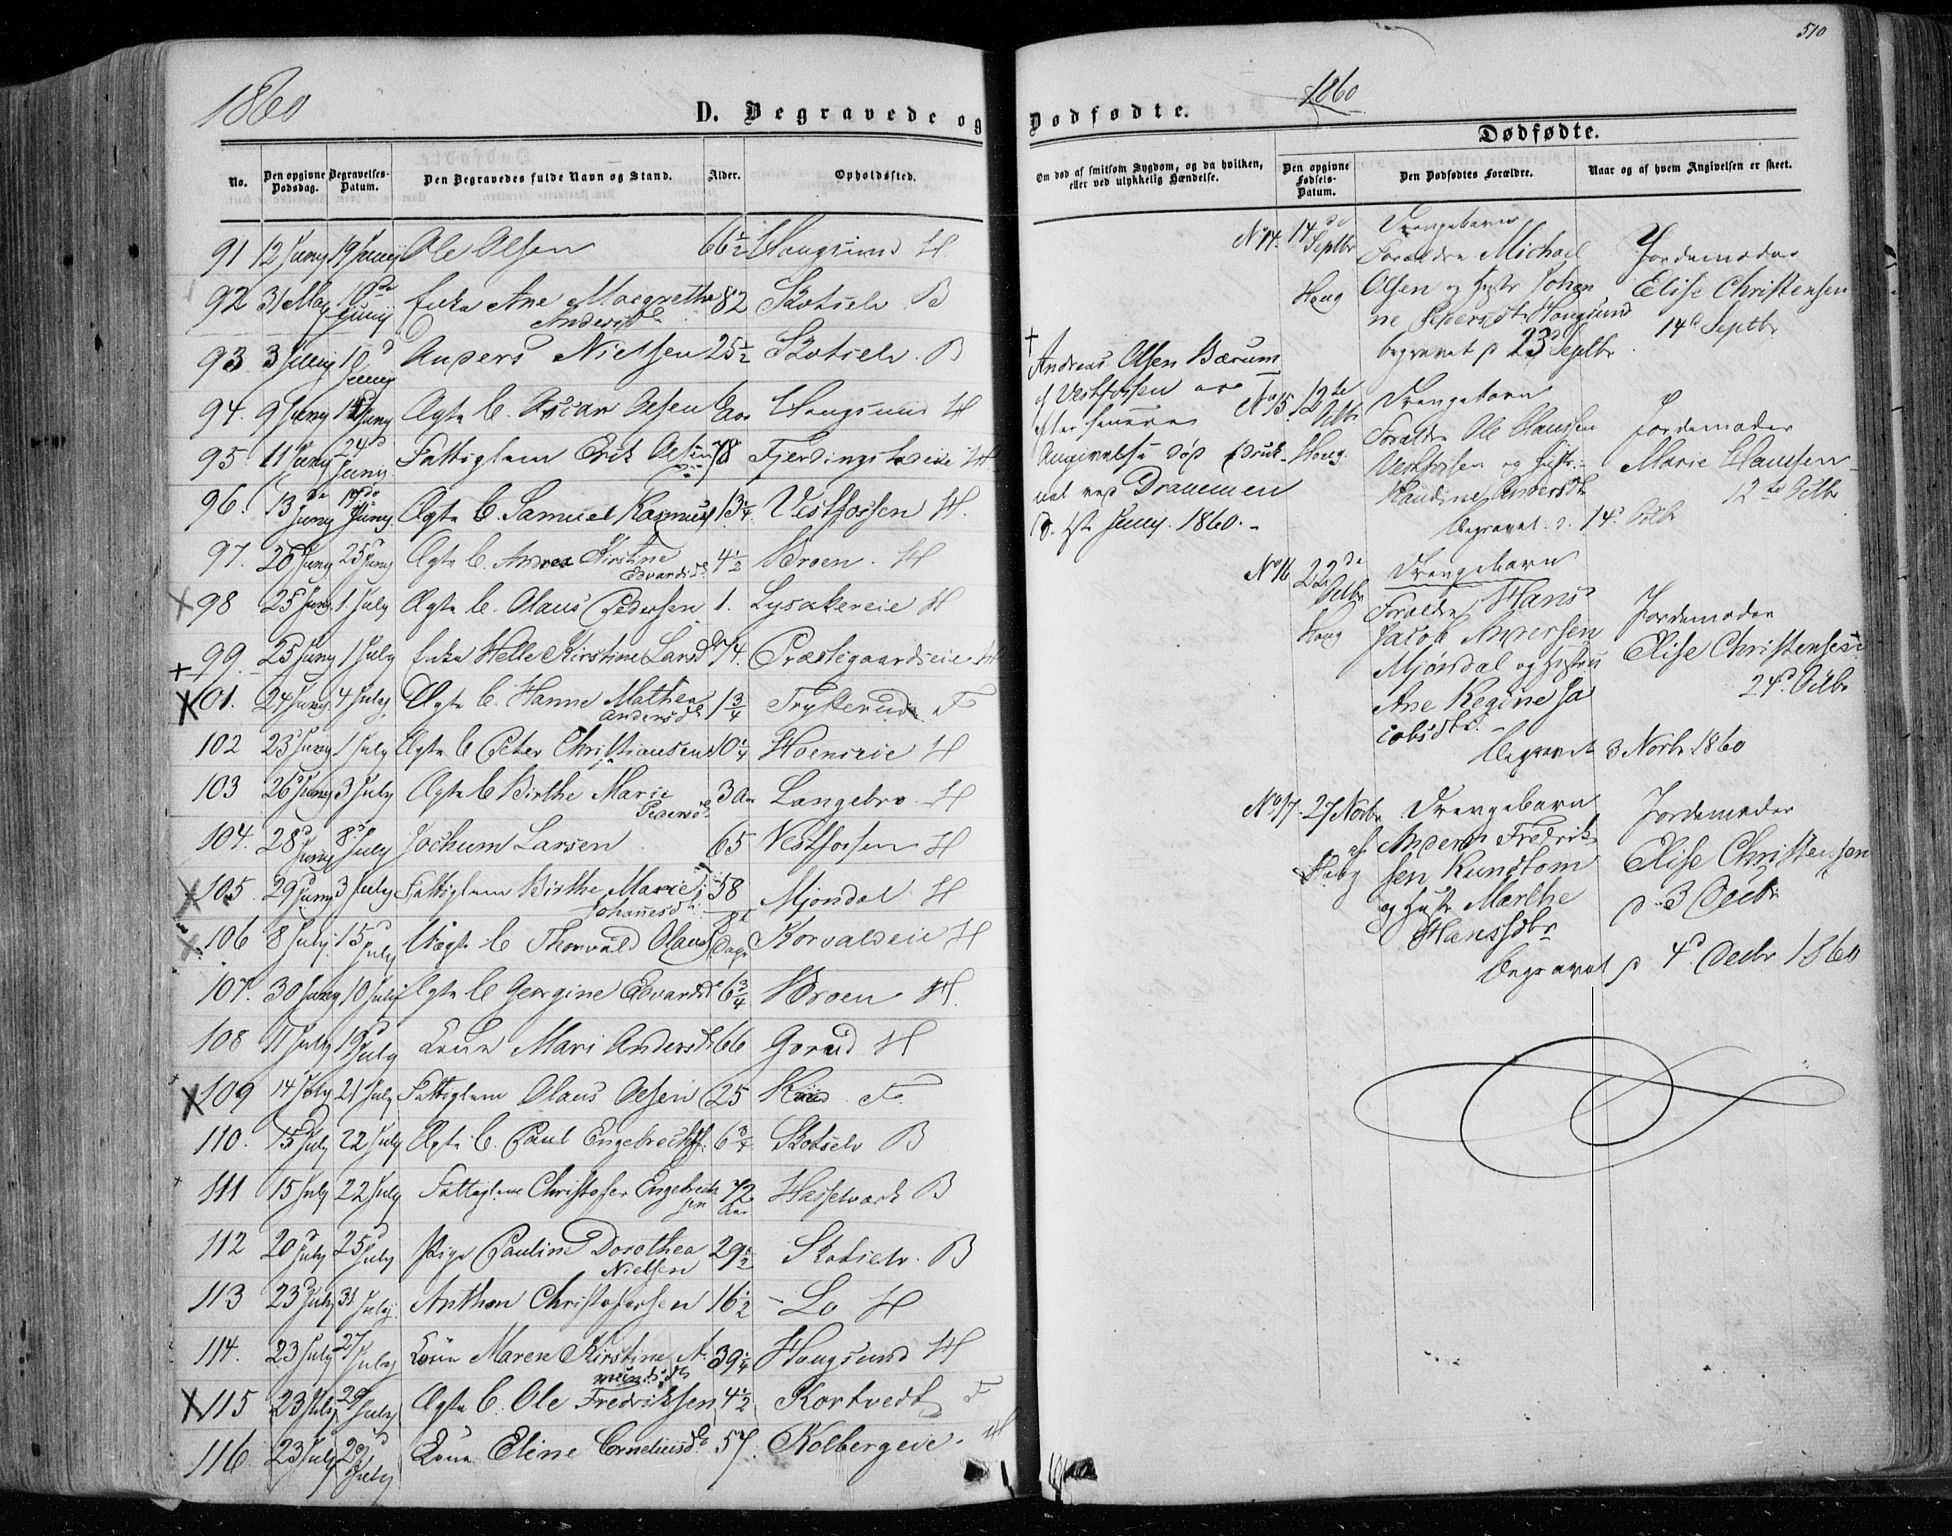 1860
D. Begravede og
No. Den opgivne Dødsdag. Begravelses-Datum. Den Begravedes fulde Navn og Stand. Alder. Opholdssted.
91 12 Juny 19 Juny Ole Olsen 66½ Hougsund H
92 31 May 10de Juny Enke Ane Margrethe 82 Skotselv B
Andersd.
93 3 Juny 10d Juny Anders Nielsen 25½ Skotselv. B
94. 9 Juny Juny Ægte B. Oscar Olsen Hougsund H
95. 11 Juny 24d Juny Fattiglem Erik Olsen 78 Fjerdingstadeie H
96. 13de Juny 17de Juny Ægte B. Samuel Rasmus 13¼ Vestfossen H.
97. 20 Juny 25 Juny Ægte B. Andrea Kirstine 4½ Broen. H
Edvardsd.
98 25 Juny 1. July Ægte B. Olaus Pedersen 1. Lysakereie H
99. 25 Juny 1 July Enke Helle Kirstine Larsd 74. Præstegaardseie H
101. 24 Juny 4 July Ægte B. Hanne Mathea 1¾ Trytterud F
Andersd.
102 23 Juny 1 July Ægte B Peter Christiansen 10¼ Hoenseie H
103 26 Juny 3 July Ægte B Birthe Marie 3 Langebro. H
Pedersd.
104. 28 Juny 8. July Jochum Larsen 65 Vestfossen H
105 29 Juny 3 July Fattiglem Birthe Marie 58 Mjøndal H
Johannesd.
106 8 July 15 July Uægte B Thorvald Olaus Dage Korvaldeie H
107. 30 Juny 10 July Ægte B Georgine Edvardsd 6¾ Broen H.
108 11 July 19 July Kone Mari Andersd 66 Gorud H
109 14 July 21 July Fattiglem Olaus Olsen 25 F.
110. 15 July 22 July Ægte B. Paul Engebrechts. 6¾ Skotselv B
111 15 July 22 July Fattiglem Christofer Engebrecht 72 Hasselvark B
sen Aar
112 20 July 25 July Pige Pauline Dorothea 29½ Skotselv. B
Nielsen
113 23 July 31 July. Anthon Christofersen 16½ Lo H
114. 23 July 27 July Kone Maren Kirstine A. 39¼ Hougsund H
mundsd.
115 23 July 29 July Ægte B. Ole Fredriksen 4½ Kortvedt F
116 23 July 29 July Kone Eline Corneliusd. 57. Kolbergeie. H
510
1860
Dødfødte.
Dødfødte.
Om død af smitsom Sygdom, og da hvilken, eller ved ulykkelig Hændelse. Den opgivne Fødsels-Datum. Den Dødfødtes Forældre. Naar og af hvem Angivelsen er skeet.
No 14. 14de Septbr Drengebarn
Forældre Michael Jordemoder
Houg Olsen og Hustr Johan Elise Christensen
ne Hougsund 14d Septbr
begravet d 23 Septbr
Andreas Olsen Bærum
af Vestfossen
efter senere
Angivelse død
ved Drammen
d. Juny. 1860.
No 15. 12te Octbr. Drengebarn
Houg. Forældre Ole Claussen Jordemoder
Vestfossen og Hustr. Marie Hansen
Andersdt 12te Octbr
Begravet d. 14d Octbr
No 16 22de Octbr Drengebarn
Houg Forældre Hans Jordemoder
Jacob Andersen Elise Christensen
Mjøndal og Hustru 24d Octbr
Ane Regine Ja
cobsdtr.
Begravet 3 Novbr 1860
No 17. 27 Novbr Drengebarn Jordemoder
Houg af Anders Fredrik Elise Christensen
sen Kunstom d. 3 Decbr
og Hustr Marthe
Hansdtr
Begravet d 4d Decbr 1860